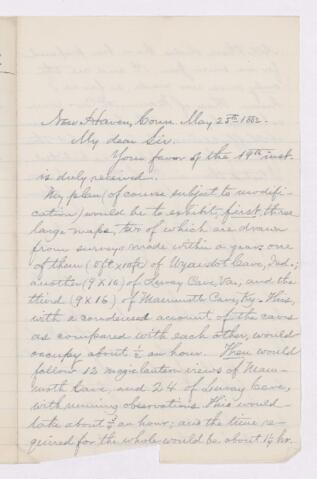 New Haven, Conn. May 23rd 1882.
My dear Sir.
Your favor of the 19th inst.
is duly received.
My plan (of course subject to modifi-
cation) would be to exhibit, first, three
large maps, two of which are drawn
from surveys made within a year: one
of them of Wyandot Cave, Ind.;
another (9 x 16) of Luray Cave, Va., and the
third (9 x 16) of Mammoth Cave, Ky. This,
with a condensed account of the caves
as compared with each other, would
occupy about ½ an hour. Then would
follow 12 magic lantern views of Mam-
moth Cave, and 24 of Luray Cave,
with running observations. This would
take about an hour; and the time re-
quired for the whole would be about 1½ hr.